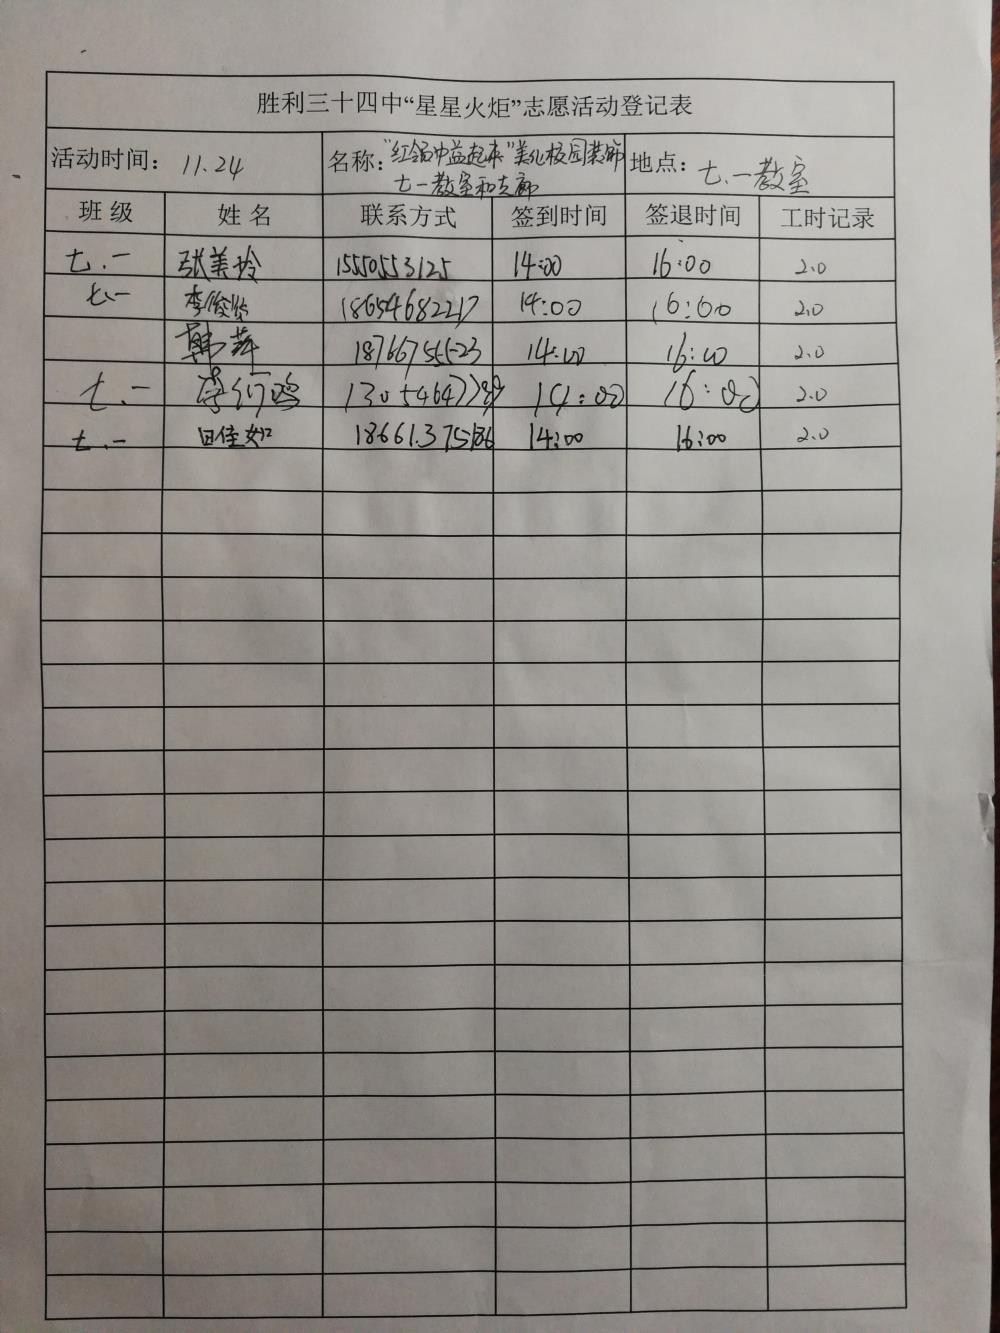 胜利三十四中“星星火炬”志愿活动登记表
活动时间： 11.24 名称：“红领巾益起来”美化校园装饰 地点：七.一教室
七一教室和走廊
班 级 姓 名 联系方式 签到时间 签退时间 工时记录
七.一 张美玲 15550553125 14:00 16:00 2.0
七.一 李俊 18654682217 14:00 16:00 2.0
韩萍 18766755523 14:00 16:00 2.0
七.一 李 14:00 16:00 2.0
七.一 田佳如 14:00 16:00 2.0